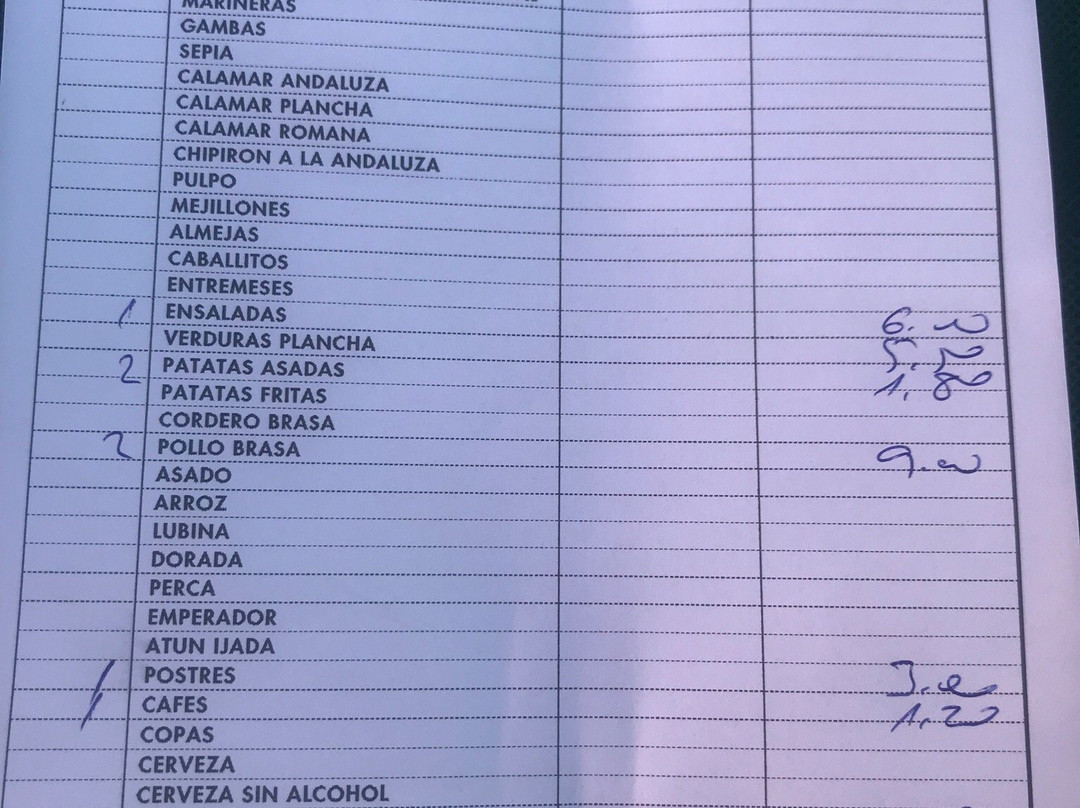 MARINERAS
GAMBAS
SEPIA
CALAMAR ANDALUZA
CALAMAR PLANCHA
CALAMAR ROMANA
CHIPIRON A LA ANDALUZA
PULPO
MEJILLONES
ALMEJAS
CABALLITOS
ENTREMESES
1 ENSALADAS
VERDURAS PLANCHA
2 PATATAS ASADAS
PATATAS FRITAS
CORDERO BRASA
2 POLLO BRASA
ASADO
ARROZ
LUBINA
DORADA
PERCA
EMPERADOR
ATUN IJADA
1 POSTRES
1 CAFES 1,20
COPAS
CERVEZA
CERVEZA SIN ALCOHOL